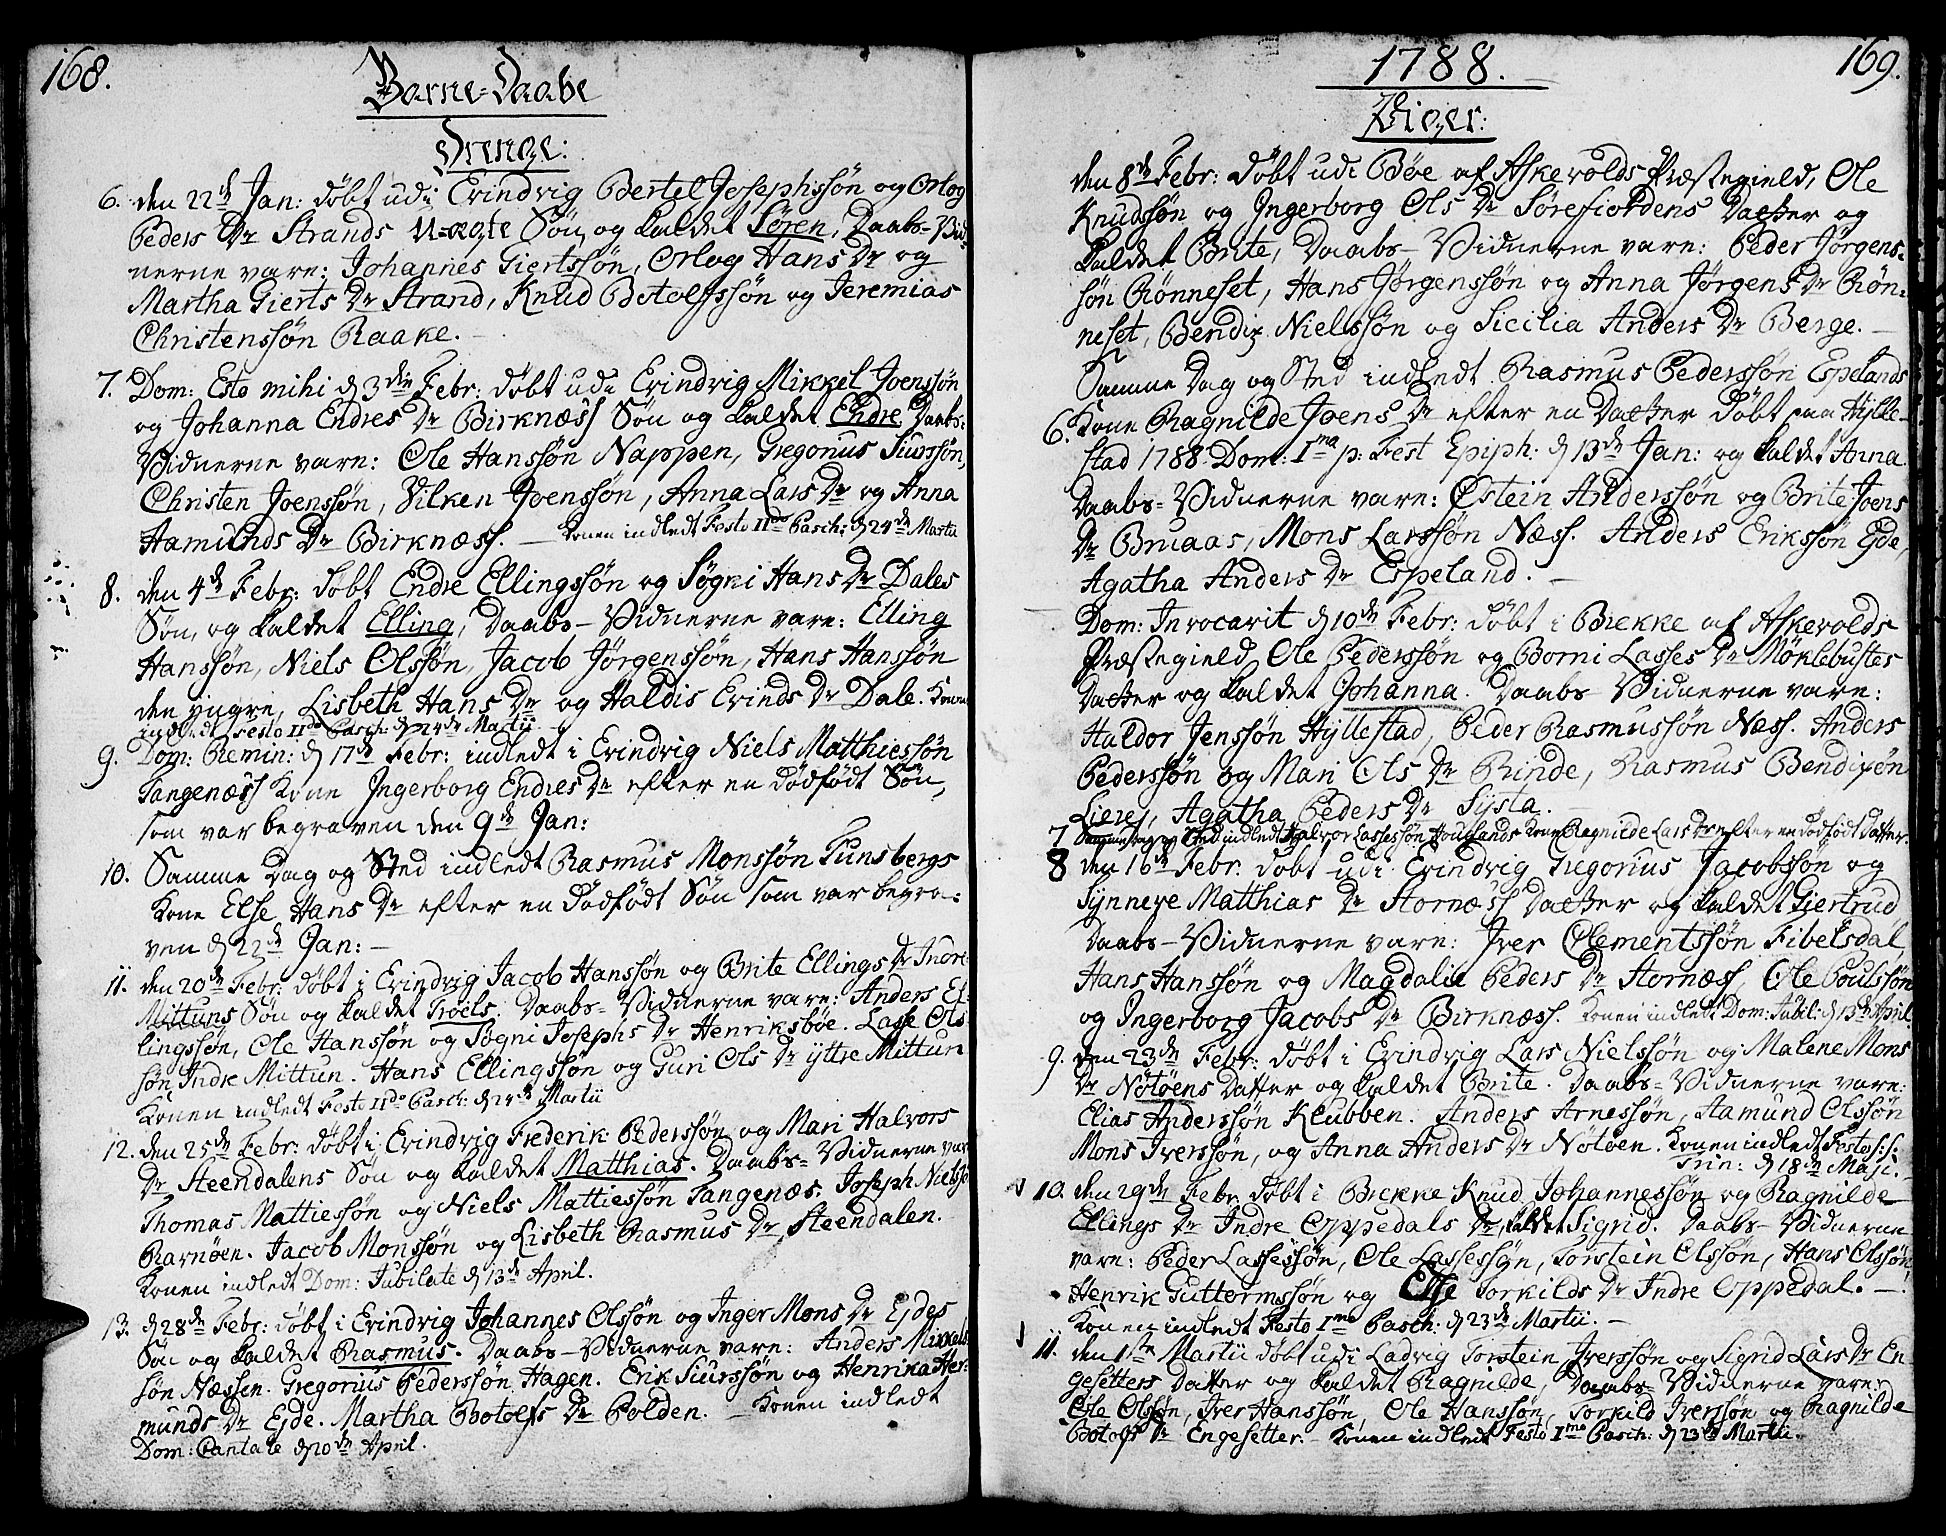 168.
Barne-Daabe
Drenge:
6. den 22de Jan: døbt udi Evindvig Bertel Josephssøn og Orlog
Peders Dr Strands U-ægte Søn og kaldet Søren, Daabs-Vid-
nerne vare: Johannes Giertssøn, Orlog Hans Dr og
Martha Gierts Dr Strand, Knud Botolfssøn og Jeremias
Christenssøn Raake. -
7. Dom: Esto mihi d 3die Febr: døbt udi Evindvig Mikkel Joenssøn
og Johanna Endres Dr Birknæss Søn og kaldet Endre Daabs-
Vidnerne vare: Ole Hanssøn Nappen, Gregorius Siurssøn,
Christen Joenssøn, Vilken Joenssøn, Anna Lars Dr og Anna
Aamunds Dr Birknæss. - Konen indledt Festo IIdo Pasch: d 24de Martii
8. den 4de Febr: døbt Endre Ellingssøn og Søgni Hans Dr Dales
Søn, og kaldet Elling, Daabs-Vidnerne vare: Elling
Hanssøn, Niels Olssøn, Jacob Jørgenssøn, Hans Hanssøn
den yngre, Lisbeth Hans Dr og Haldis Evinds Dr Dale. Konen
indledt Festo IIdo Pasch: d 24de Martii
9. Dom: Remin: d 17de Febr: indledt i Evindvig Niels Matthiessøn
Tangenæss Kone Ingerborg Endres Dr efter en dødfødt Søn,
som var begraven den 9de Jan:
10. Samme Dag og Sted indledt Rasmus Monssøn Tunsbergs
Kone Else Hans Dr efter en dødfødt Søn som var begra-
ven d 22de Jan: -
11. den 20de Febr: døbt i Evindvig Jacob Hanssøn og Brite Ellings Dr Indre
Mittuns Søn og kaldet Troels. Daabs-Vidnerne vare: Anders El-
lingssøn, Ole Hanssøn og Sogni Josephs Dr Henriksbøe. Lasse Ols-
søn Indre Mittun. Hans Ellingssøn og Guri Ols Dr ÿttre Mittun
Konen indledt Festo IIdo Pasch: d 24de Martii
12. den 25de Febr: døbt i Evindvig Frederik Pederssøn og Mari Halvors
Dr Steendalens Søn og kaldet Matthias. Daabs-Vidnerne var
Thomas Mattiessøn og Niels Mattiessøn Tangenæs. Joseph Nielssø
Rarnøen. Jacob Monssøn og Lisbeth Rasmus Dr Steendalen.
Konen indledt Dom: Jubilate d 13de April.
13. d 28de Febr: døbt i Evindvig Johannes Olssøn og Inger Mons Dr Ejdes
Søn og kaldet Rasmus. Daabs-Vidnerne vare: Anders Mikkels
søn Næssen. Gregorius Pederssøn Hagen. Erik Siurssøn og Henrika Her-
munds Dr Ejde. Martha Botolfs Dr Polden. - Konen indledt
Dom: Cantate d 20de April.
1788.
169.
Piger:
den 8de Febr: døbt udi Bøe af Askevolds Præstegield, Ole
Knudssøn og Ingerborg Ols Dr Sørefiordens Datter og
kaldet Brite, Daabs-Vidnerne vare: Peder Jørgens-
søn Rønneset, Hans Jørgenssøn og Anna Jørgens Dr Røn-
neset, Bendix Nielssøn og Sicilia Anders Dr Berge. -
Samme Dag og Sted indledt Rasmus Pederssøn Espelands
6. Kone Ragnilde Joens Dr efter en Datter døbt paa Hylle-
stad 1788 Dom: Ima p: Fest Epiph: d 13de Jan: og kaldet Anna.
Daabs-Vidnerne vare: Østein Anderssøn og Brite Joens
Dr Bruaas, Mons Larssøn Næss. Anders Erikssøn Ejde,
Agatha Anders Dr Espeland. -
Dom: Invocavit d 10de Febr: døbt i Brekke af Askevolds
Præstegield Ole Pederssøn og Borni Lasses Dr Møklebustes
Datter og kaldet Johanna. Daabs Vidnerne vare:
Haldor Jenssøn Hyllestad, Peder Rasmussøn Næss. Anders
Pederssøn og Mari Ols Dr Rinde, Rasmus Bendixøn
Lierej, Agatha Peders Dr Systa. -
7 Samme dag og Sted indledt Halvor Lassessøn Houglands Kone Ragnilde Lars Dr efter en dødfødt Datter.
8 den 16de Febr. døbt udi Evindvig Gregorius Jacobssøn og
Synneve Matthias Dr Stornæss Datter og kaldet Giertrud
Daabs-Vidnerne vare: Iver Clementssøn Fibelsdal,
Hans Hanssøn og Magdalie Peders Dr Stornæss, Ole Poulssøn
og Ingerborg Jacobs Dr Birknæss. Konen indledt Dom: Jubil: d 13de April.
9. den 23de Febr: døbt i Evindvig Lars Nielssøn og Malene Mons
Dr Nøtøens Datter og kaldet Brite. Daabs-Vidnerne vare:
Elias Anderssøn Klubben. Anders Arnessøn, Aamund Olssøn
Mons Iverssøn, og Anna Anders Dr Nøtøen. Konen indledt Festo s: s:
Trin: d 18de Maji.
10. den 29de Febr. døbt i Brekke Knud Johannessøn og Ragnilde
Ellings Dr Indre Oppedals Dr, kaldet Sigrid. Daabs-Vidnerne
vare: Peder Lassessøn, Ole Lassessøn, Torstein Olssøn, Hans Olssøn,
Henrik Guttermssøn og Else Torkilds Dr Indre Oppedal. -
Konen indledt Festo Imo Pasch: d 23de Martii. -
11. den 1ste Martii døbt udi Ladvig Torstein Iverssøn og Sigrid Lars Dr En-
gesetters Datter og kaldet Ragnilde, Daabs-Vidnerne vare:
Ole Olssøn, Iver Hanssøn, Ole Hanssøn, Torkild Iverssøn og Ragnilde
Botolfs Dr Engesetter. - Konen indledt Festo Imo Pasch: d 23de Martii.